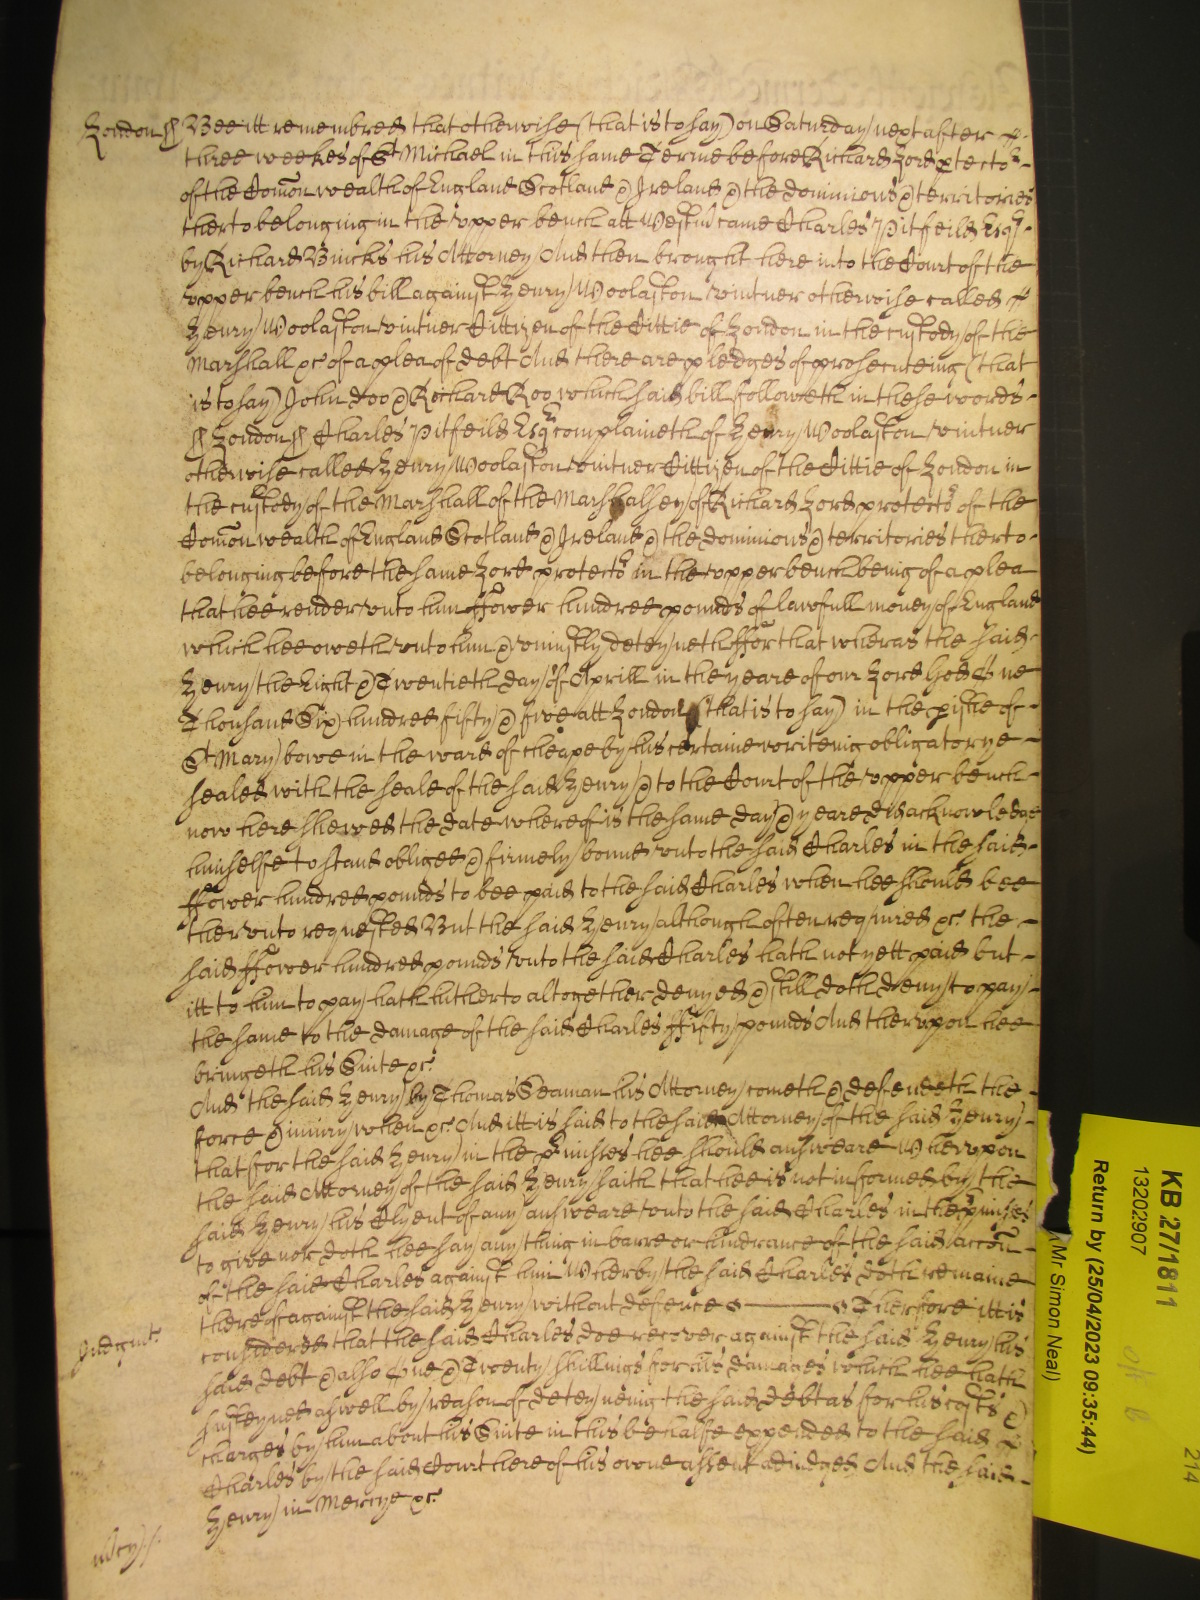 London ss Bee itt remembred that otherwise (that is to say) on Saturday next after
three weekes of St Michael in this same Terme before Richard Lord ptector
of the Comon wealth of England Scotland & Ireland & the dominions & territories
therto belonging in the upper bench att Westm came Charles Pitfeild Esqr
by Richard Buicks his Attorney And then brought here into the Court of the
upper bench his bill against Henry Woolaston vintner otherwise called
Henry Woolaston vintner Cittizen of the Cittie of London in the custody of the
Marshall &c of a plea of debt And there are pledges of prosecuteing (that
is to say) John Doo & Richard Roo which said bill followeth in these words
ss London ss Charles Pitfeild Esqr complaineth of Henry Woolaston vintner
otherwise called Henry Woolaston vintner Cittizen of the Cittie of London in
the custody of the Marshall of the Marshalsey of Richard Lord protector of the
Comon wealth of England Scotland & Ireland & the dominions & territories therto
belonging before the same Lord protector in the upper bench being of a plea
that hee render unto him ffower hundred pounds of lawfull money of England
which hee oweth unto him & uniustly deteyneth ffor that wheras the said
Henry the Eight & Twentieth day of Aprill in the yeare of our Lord God One
Thousand Six hundred fifty & five att London (that is to say) in the pishe of
St Mary bowe in the ward of cheape by his certaine writeing obligatorye
sealed with the seale of the said Henry & to the Court of the upper bench
now here shewed the date whereof is the same day & yeare did acknowledge
himselfe to stand obliged & firmely bound unto the said Charles in the said
ffower hundred pounds to bee paid to the said Charles when hee should bee
therunto requested But the said Henry although often required &c the
said ffower hundred pounds unto the said Charles hath not yett paid but
itt to him to pay hath hitherto altogether denyed & still doth deny to pay
the same to the damage of the said Charles ffifty pounds And therupon hee
bringeth his Suite &c
And the said Henry by Thomas Seaman his Attorney cometh & defendeth the
force & iniury when &c And itt is said to the said Attorney of the said Henry
that for the said Henry in the pmisses hee should answeare Wherupon
the said Attorney of the said Henry saith that hee is not informed by the
said Henry his Clyent of any answeare unto the said Charles in the pmisses
to give nor doth hee say any thing in barre or hindrance of the said accon
of the said Charles against him Wherby the said Charles doth remaine
therof against the said Henry without defence Therfore itt is
Judgmt consldered that the said Charles doe recover against the said Henry his
said debt & also One & Twenty shillings for his damages which hee hath
susteyned aswell by reason of deteyneing the said debt as for his costs &
charges by him about his Suite in this behalfe expended to the said
Charles by the said Court here of his owne assent adiudged And the said
Henry in Mercye &c
Mcy
KB 27/1811
13202907
Return by (25/04/2023 09:35:44)
(Mr Simon Neal)
214